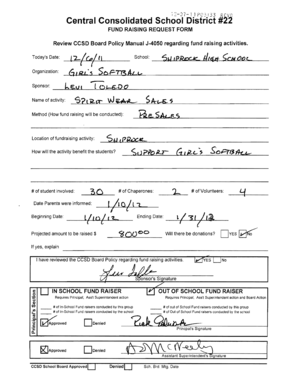 Central Consolidated School District #22
FUND RAISING REQUEST FORM
Review CCSD Board Policy Manual J-4050 regarding fund raising activities.
Today's Date: 12/6/11 School: SHIPROCK HIGH SCHOOL
Organization: GIRL'S SOFTBALL
Sponsor: LEVI TOLEDO
Name of activity: SPIRIT WEAR SALES
Method (How fund raising will be conducted): PRESALES
Location of fundraising activity: SHIPROCK
How will the activity benefit the students? SUPPORT GIRL'S SOFTBALL
# of student involved: 30 # of Chaperones: 2 # of Volunteers: 4
Date Parents were informed: 1/10/12
Beginning Date: 1/10/12 Ending Date: 1/31/12
Projected amount to be raised $ 800.00 Will there be donations? YES No
If yes, explain
I have reviewed the CCSD Board Policy regarding fund raising activities. YES No
Sponsor's Signature
Principal's Section
IN SCHOOL FUND RAISER
Requires Principal, Asst Superintendent action
# of In School Fund raisers conducted by this group
# of In School Fund raisers conducted by your school
OUT OF SCHOOL FUND RAISER
Requires Principal, Asst Superintendent action and Board Action
# of Out of School Fund raisers conducted by this group
# of Out of School Fund raisers conducted by your school
Approved Denied
Principal's Signature
Approved Denied
Assistant Superintendent's Signature
CCSD School Board Approved Denied Sch. Brd. Mtg. Date